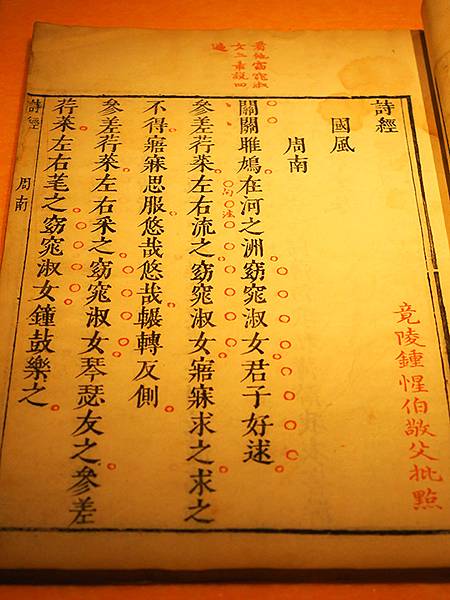 詩經
竟陵鍾惺伯敬父批點
國風
周南
看他窈窕淑
女三章說四
遍
關關雎鳩在河之洲窈窕淑女君子好逑
句法
參差荇菜左右流之窈窕淑女寤寐求之求之
不得寤寐思服悠哉悠哉輾轉反側
參差荇菜左右采之窈窕淑女琴瑟友之參差
荇菜左右芼之窈窕淑女鐘鼓樂之
詩經
周南